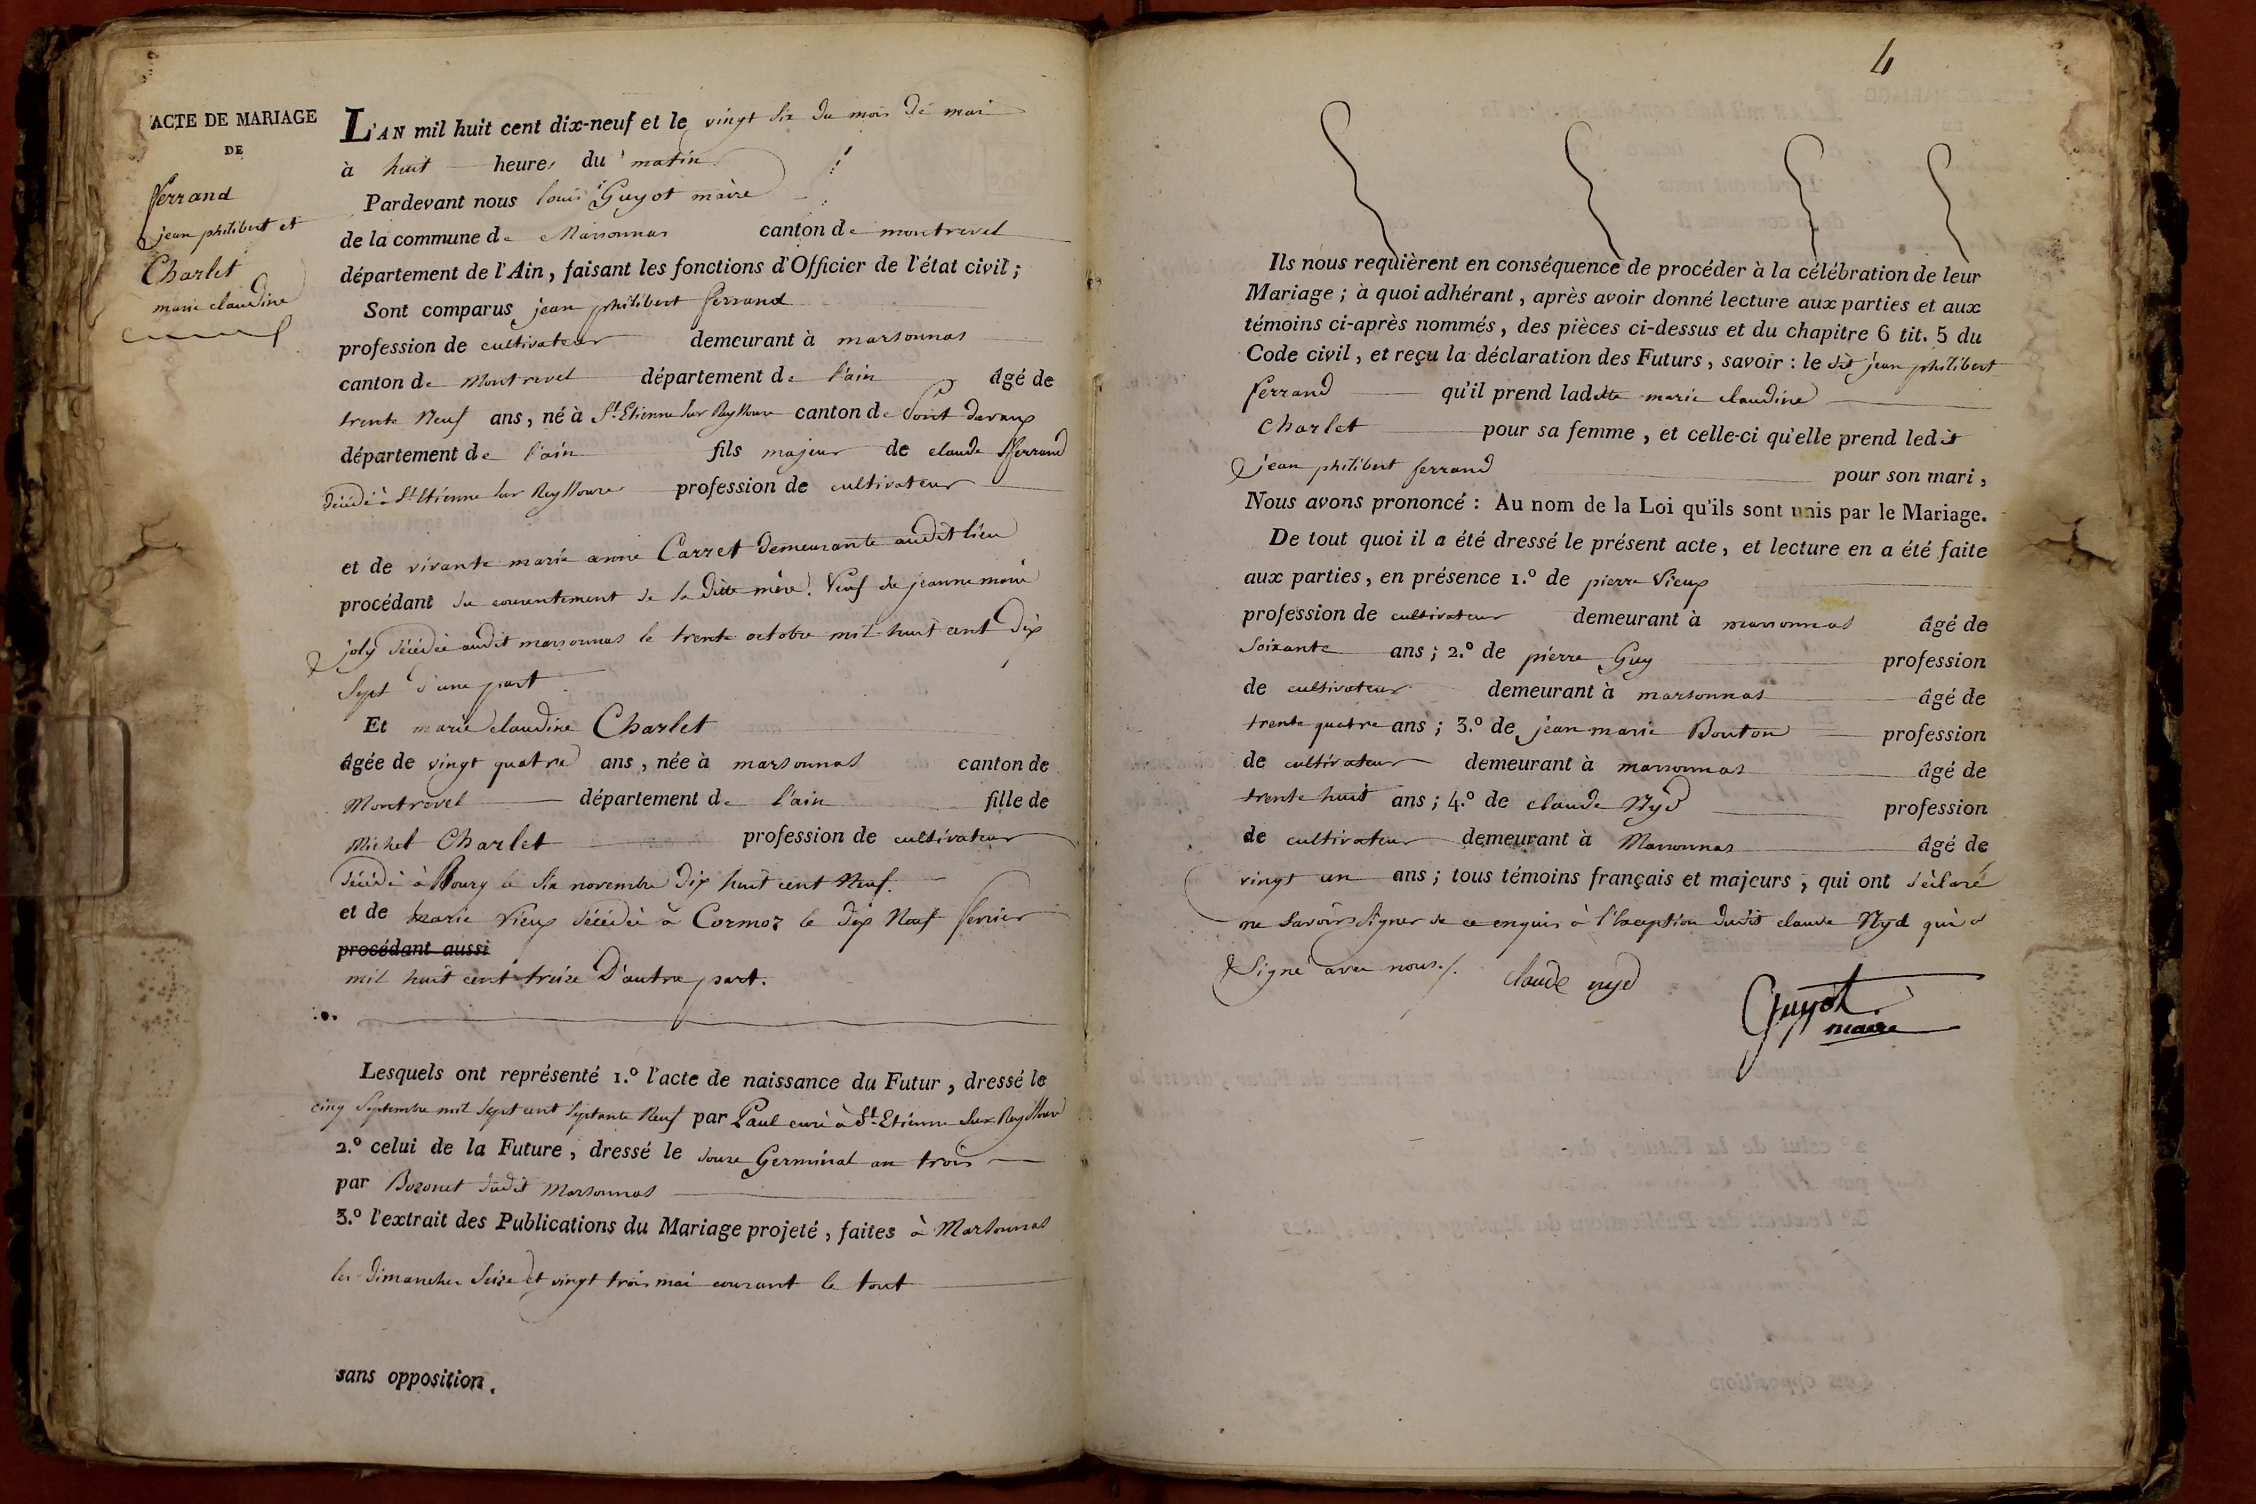 ACTE DE MARIAGE
DE
ferrand
jean philibert et
Charlet
marie claudine
L'AN mil huit cent dix-neuf et le vingt six du mois de mai
à huit heures du matin
Pardevant nous louis Guyot maire
de la commune de Marsonnas canton de montrevel
département de l'Ain, faisant les fonctions d'Officier de l'état civil;
Sont comparus jean philibert ferrand
profession de cultivateur demeurant à marsonnas
canton de Montrevel département de l'ain âgé de
trente Neuf ans, né à St. Etienne sur Reyssouze canton de Pont devaux
département de l'ain fils majeur de claude fferrand
décédé à St. Etienne sur Reyssouze profession de cultivateur
et de vivante marie anne Carret demeurante audit lieu
procédant du consentement de sa ditte mère. Veuf de jeanne marie
joly décédée audit marsonnas le trente octobre mil huit cent dix
sept d'une part
Et marie claudine Charlet
âgée de vingt quatre ans, née à marsonnas canton de
Montrevel département de l'ain fille de
Michel Charlet profession de cultivateur
décédé à Bourg le six novembre dix huit cent Neuf.
et de marie Vieux décédée à Cormoz le dix Neuf fevrier
procédant aussi
mil huit cent treize D'autre part.
Lesquels ont représenté 1.º l'acte de naissance du Futur, dressé le
cinq Septembre mil sept cent septante Neuf par Paul curé à St. Etienne sur Reyssouze
2.º celui de la Future, dressé le douze Germinal an trois
par Bozonet dudit Marsonnas
3.º l'extrait des Publications du Mariage projeté, faites à Marsonnas
les dimanches seize et vingt trois mai courant le tout
sans opposition.
4
Ils nous requièrent en conséquence de procéder à la célébration de leur
Mariage; à quoi adhérant, après avoir donné lecture aux parties et aux
témoins ci-après nommés, des pièces ci-dessus et du chapitre 6 tit. 5 du
Code civil, et reçu la déclaration des Futurs, savoir: le dit jean philibert
ferrand qu'il prend laditte marie claudine
Charlet pour sa femme, et celle-ci qu'elle prend ledit
jean philibert ferrand pour son mari,
Nous avons prononcé: Au nom de la Loi qu'ils sont unis par le Mariage.
De tout quoi il a été dressé le présent acte, et lecture en a été faite
aux parties, en présence 1.º de pierre Vieux
profession de cultivateur demeurant à marsonnas âgé de
soixante ans; 2.º de pierre Guy profession
de cultivateur demeurant à marsonnas âgé de
trente quatre ans; 3.º de jean marie Bouton profession
de cultivateur demeurant à marsonnas âgé de
trente huit ans; 4.º de claude Nyd profession
de cultivateur demeurant à Marsonnas âgé de
vingt un ans; tous témoins français et majeurs, qui ont déclaré
ne savoir signer de ce enquis à l'exception dudit claude Nyd qui a
signé avec nous./. claude nyd
Guyot
maire